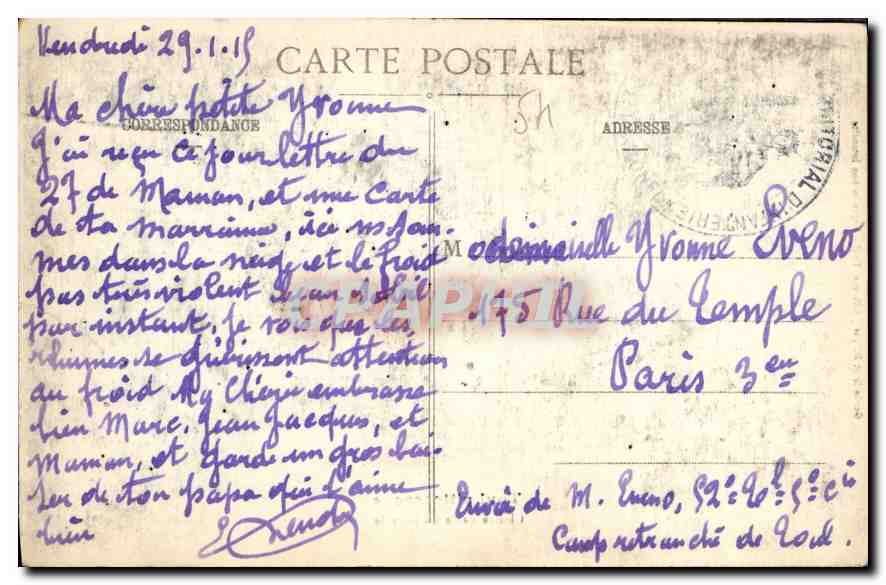 Vendredi 29.1.15
CARTE POSTALE
Ma chère petite Yvonne
CORRESPONDANCE
J'ai reçu ce jour lettre du
27 de Maman, et une Carte
de ta marraine, ici ns som-
mes dans la neige et le froid
pas très violent beau soleil
par instant, je vois que les
rhumes se guérissent attention
au froid My Chérie embrasse
bien Marc, Jean Jacques, et
Maman, et garde un gros bai-
ser de ton papa qui t'aime
bien
E Eveno
54
ADRESSE
TERRITORIAL D'INFANTERIE
Mademoiselle Yvonne Eveno
195 Rue du Temple
Paris 3 em
Envoi de M. Eveno, 52e Tal 5e Cie
Camp retranché de Toul.
CPAPHIL